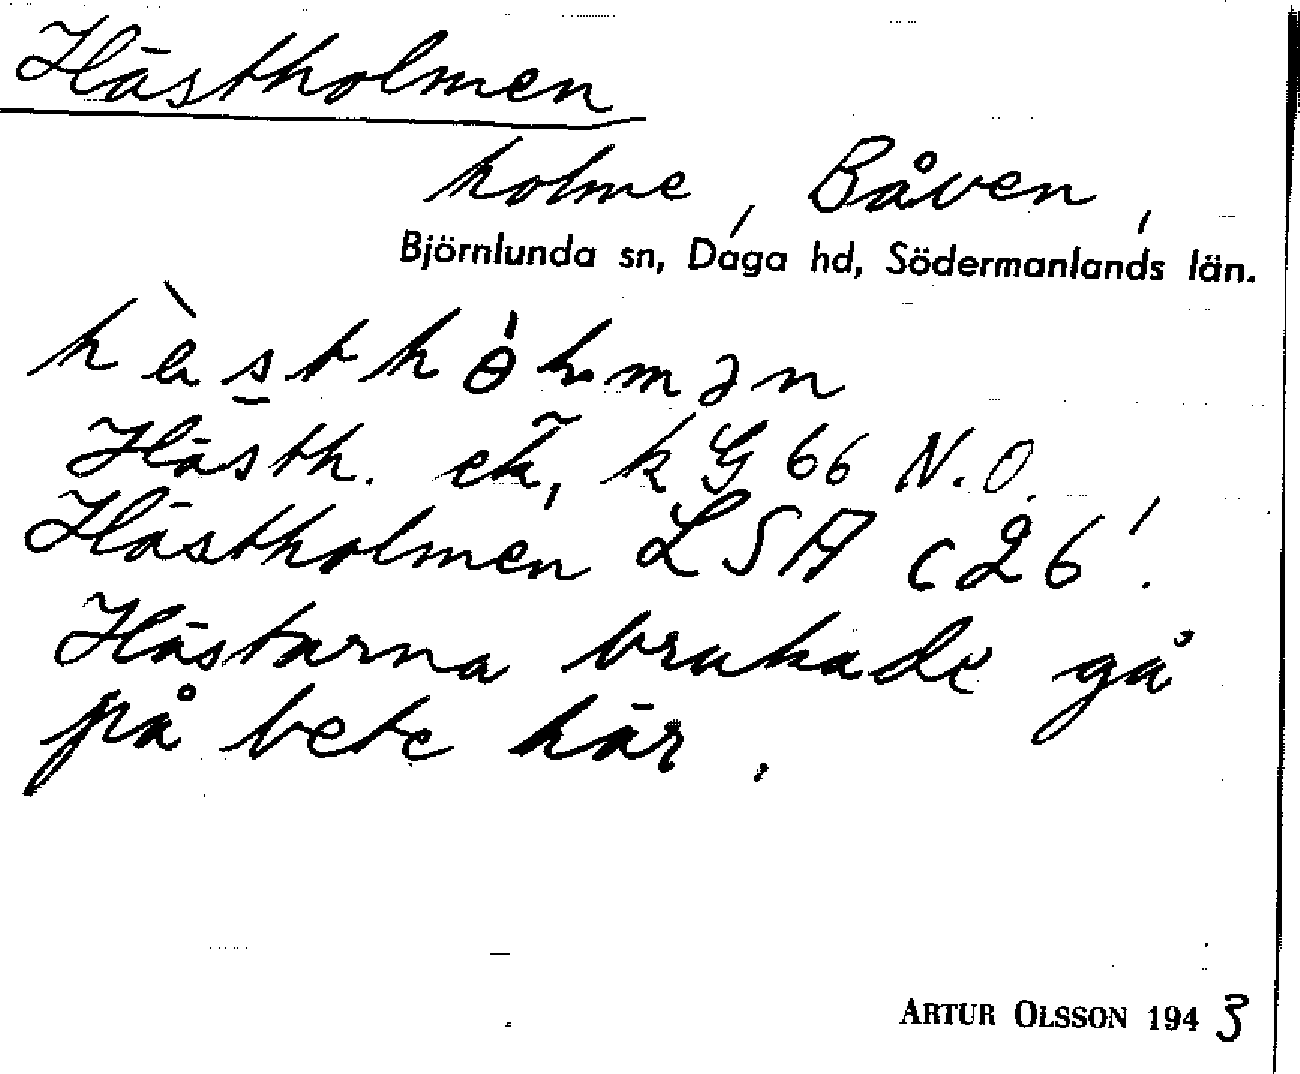 Hästholmen
holme, Båven,
Björnlunda sn, Daga hd, Södermanlands län.
Hästh. ek, k G 66 N.O.
Hästholmen LSA c 26!
Hästarna brukade gå
på bete här.
ARTUR OLSSON 1943